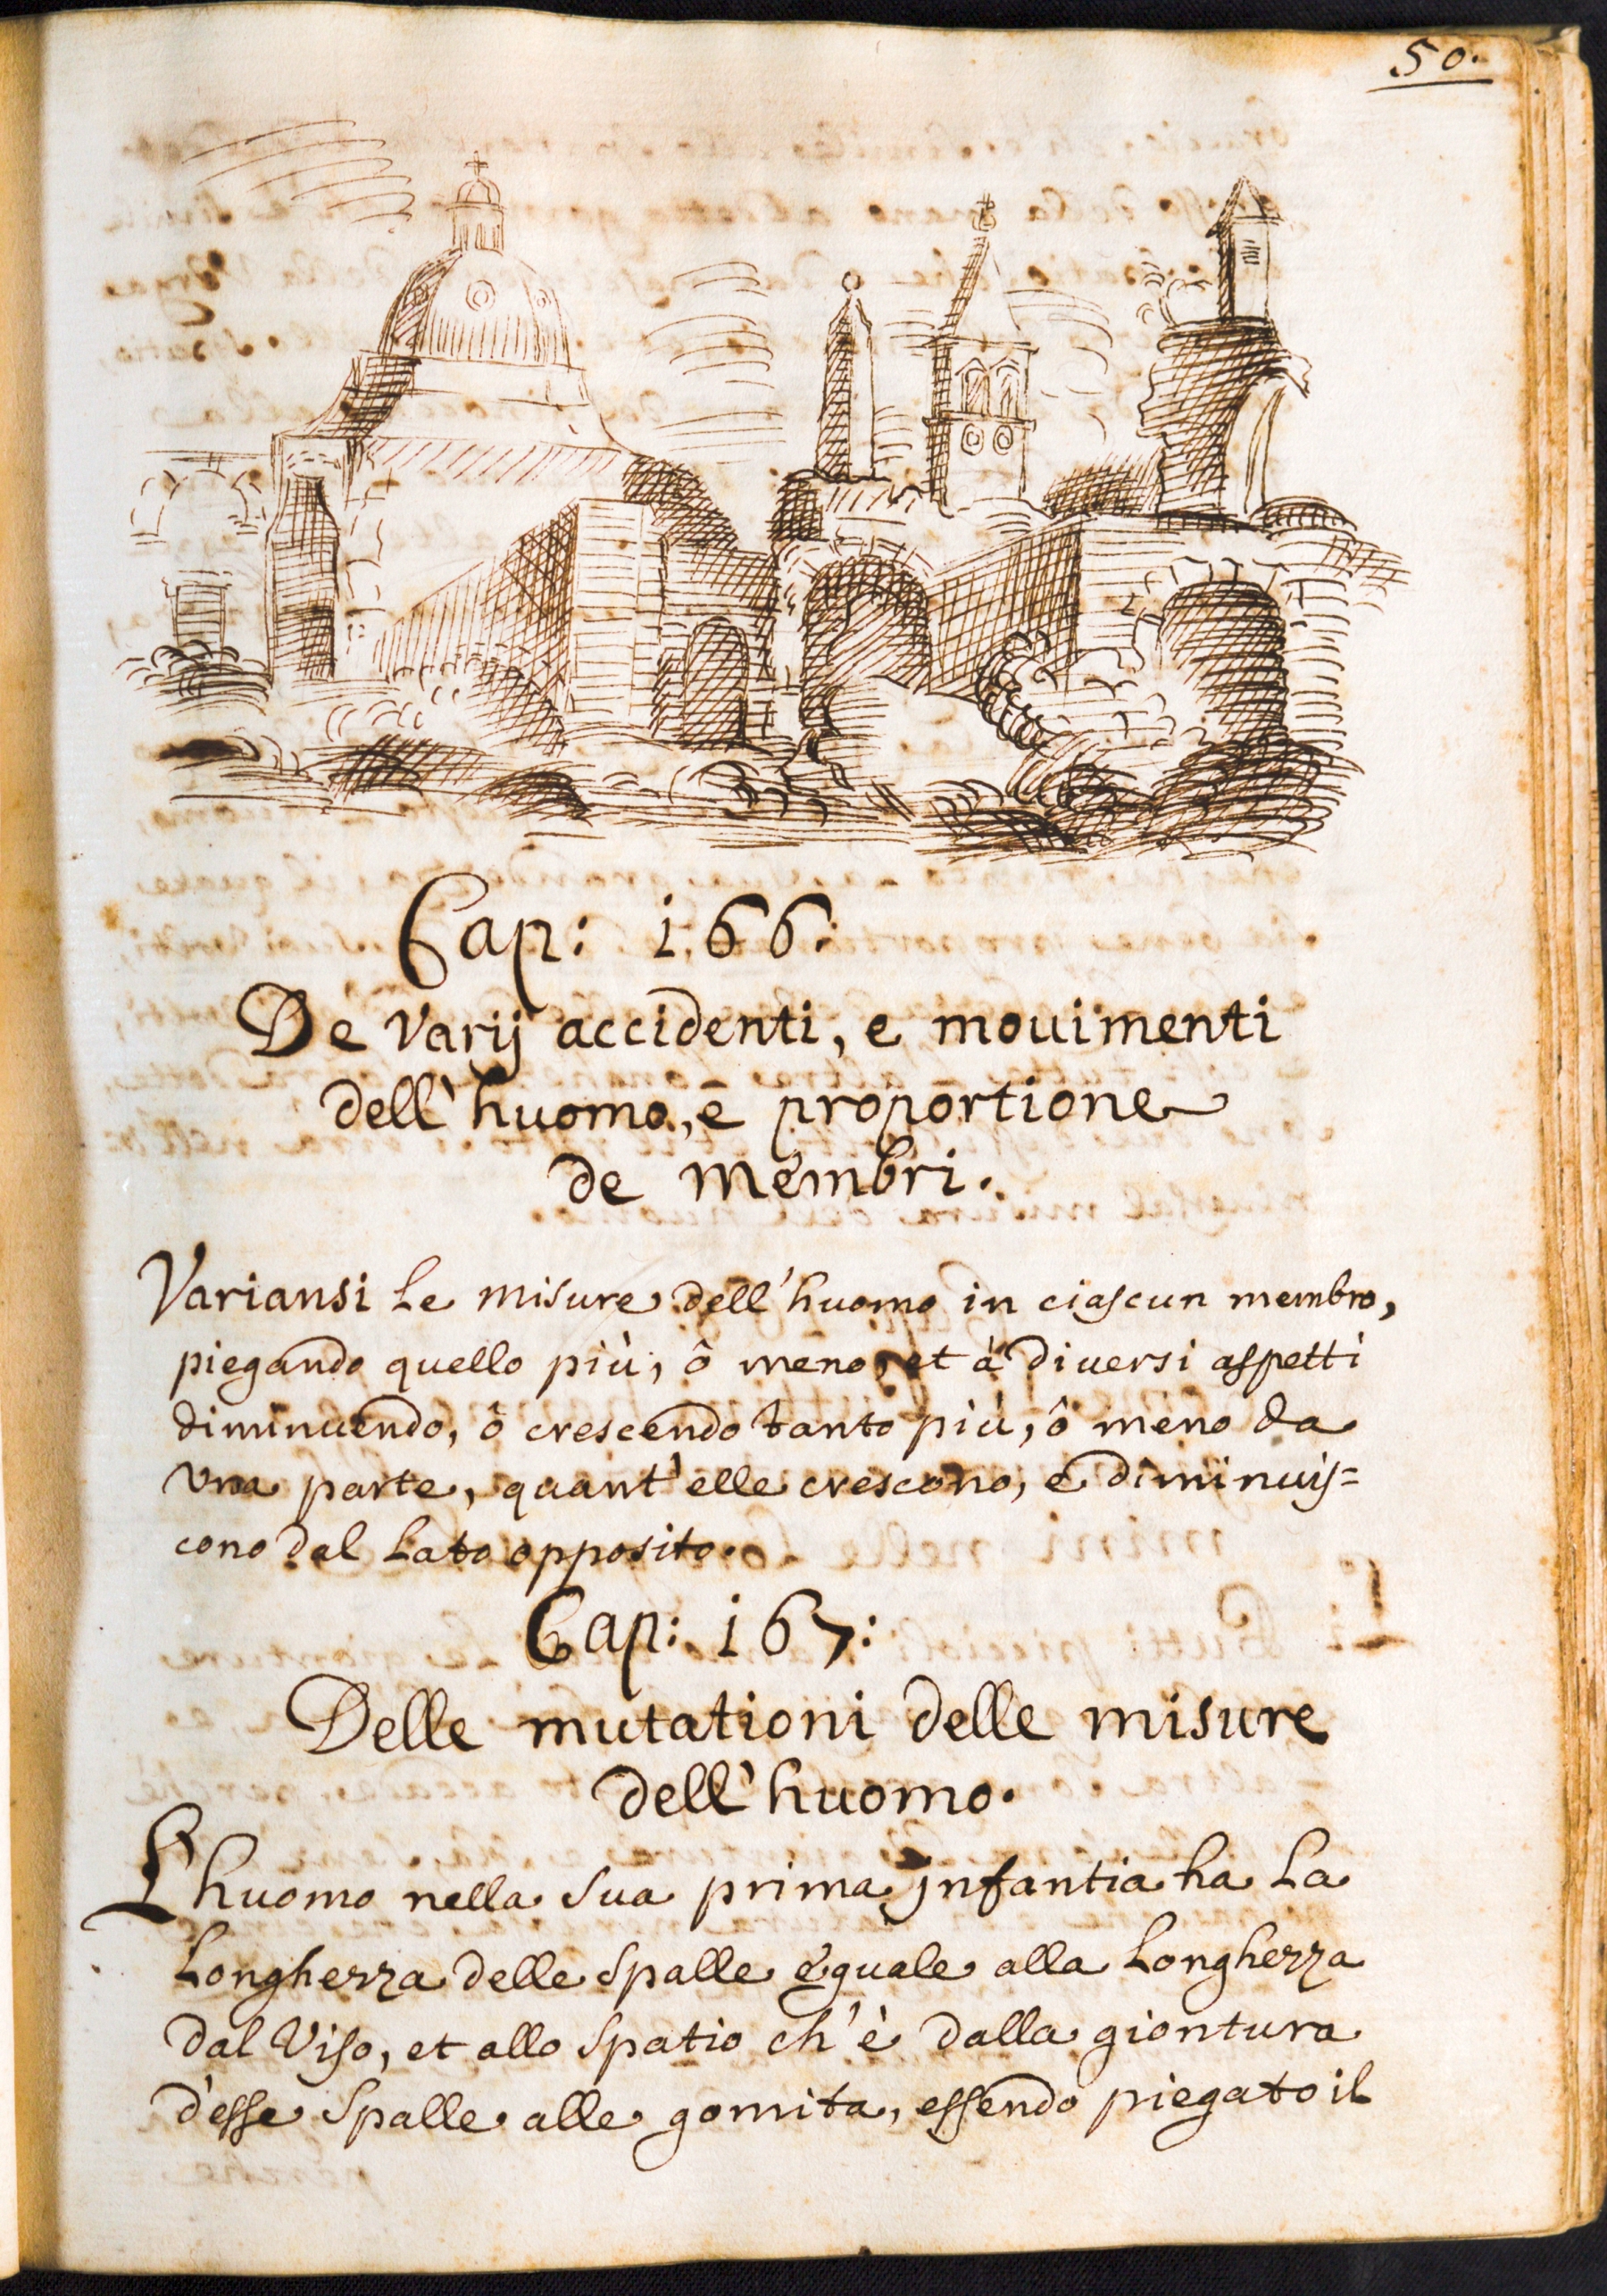 50.
Cap: 166:
De varij accidenti, e mouimenti
dell'huomo, e proportione
de membri.
Variansi le misure dell'huomo in ciascun membro,
piegando quello più, ô meno, et à diuersi aspetti
diminuendo, ô crescendo tanto più, ô meno da
vna parte, quant'elle crescono, e diminuis=
cono dal lato opposito.
Cap: 167:
Delle mutationi delle misure
dell'huomo.
L'huomo nella sua prima jnfantia ha la
longhezza delle spalle eguale alla longhezza
dal viso, et allo spatio ch'è dalla giontura
d'esse spalle alle gomita, essendo piegato il